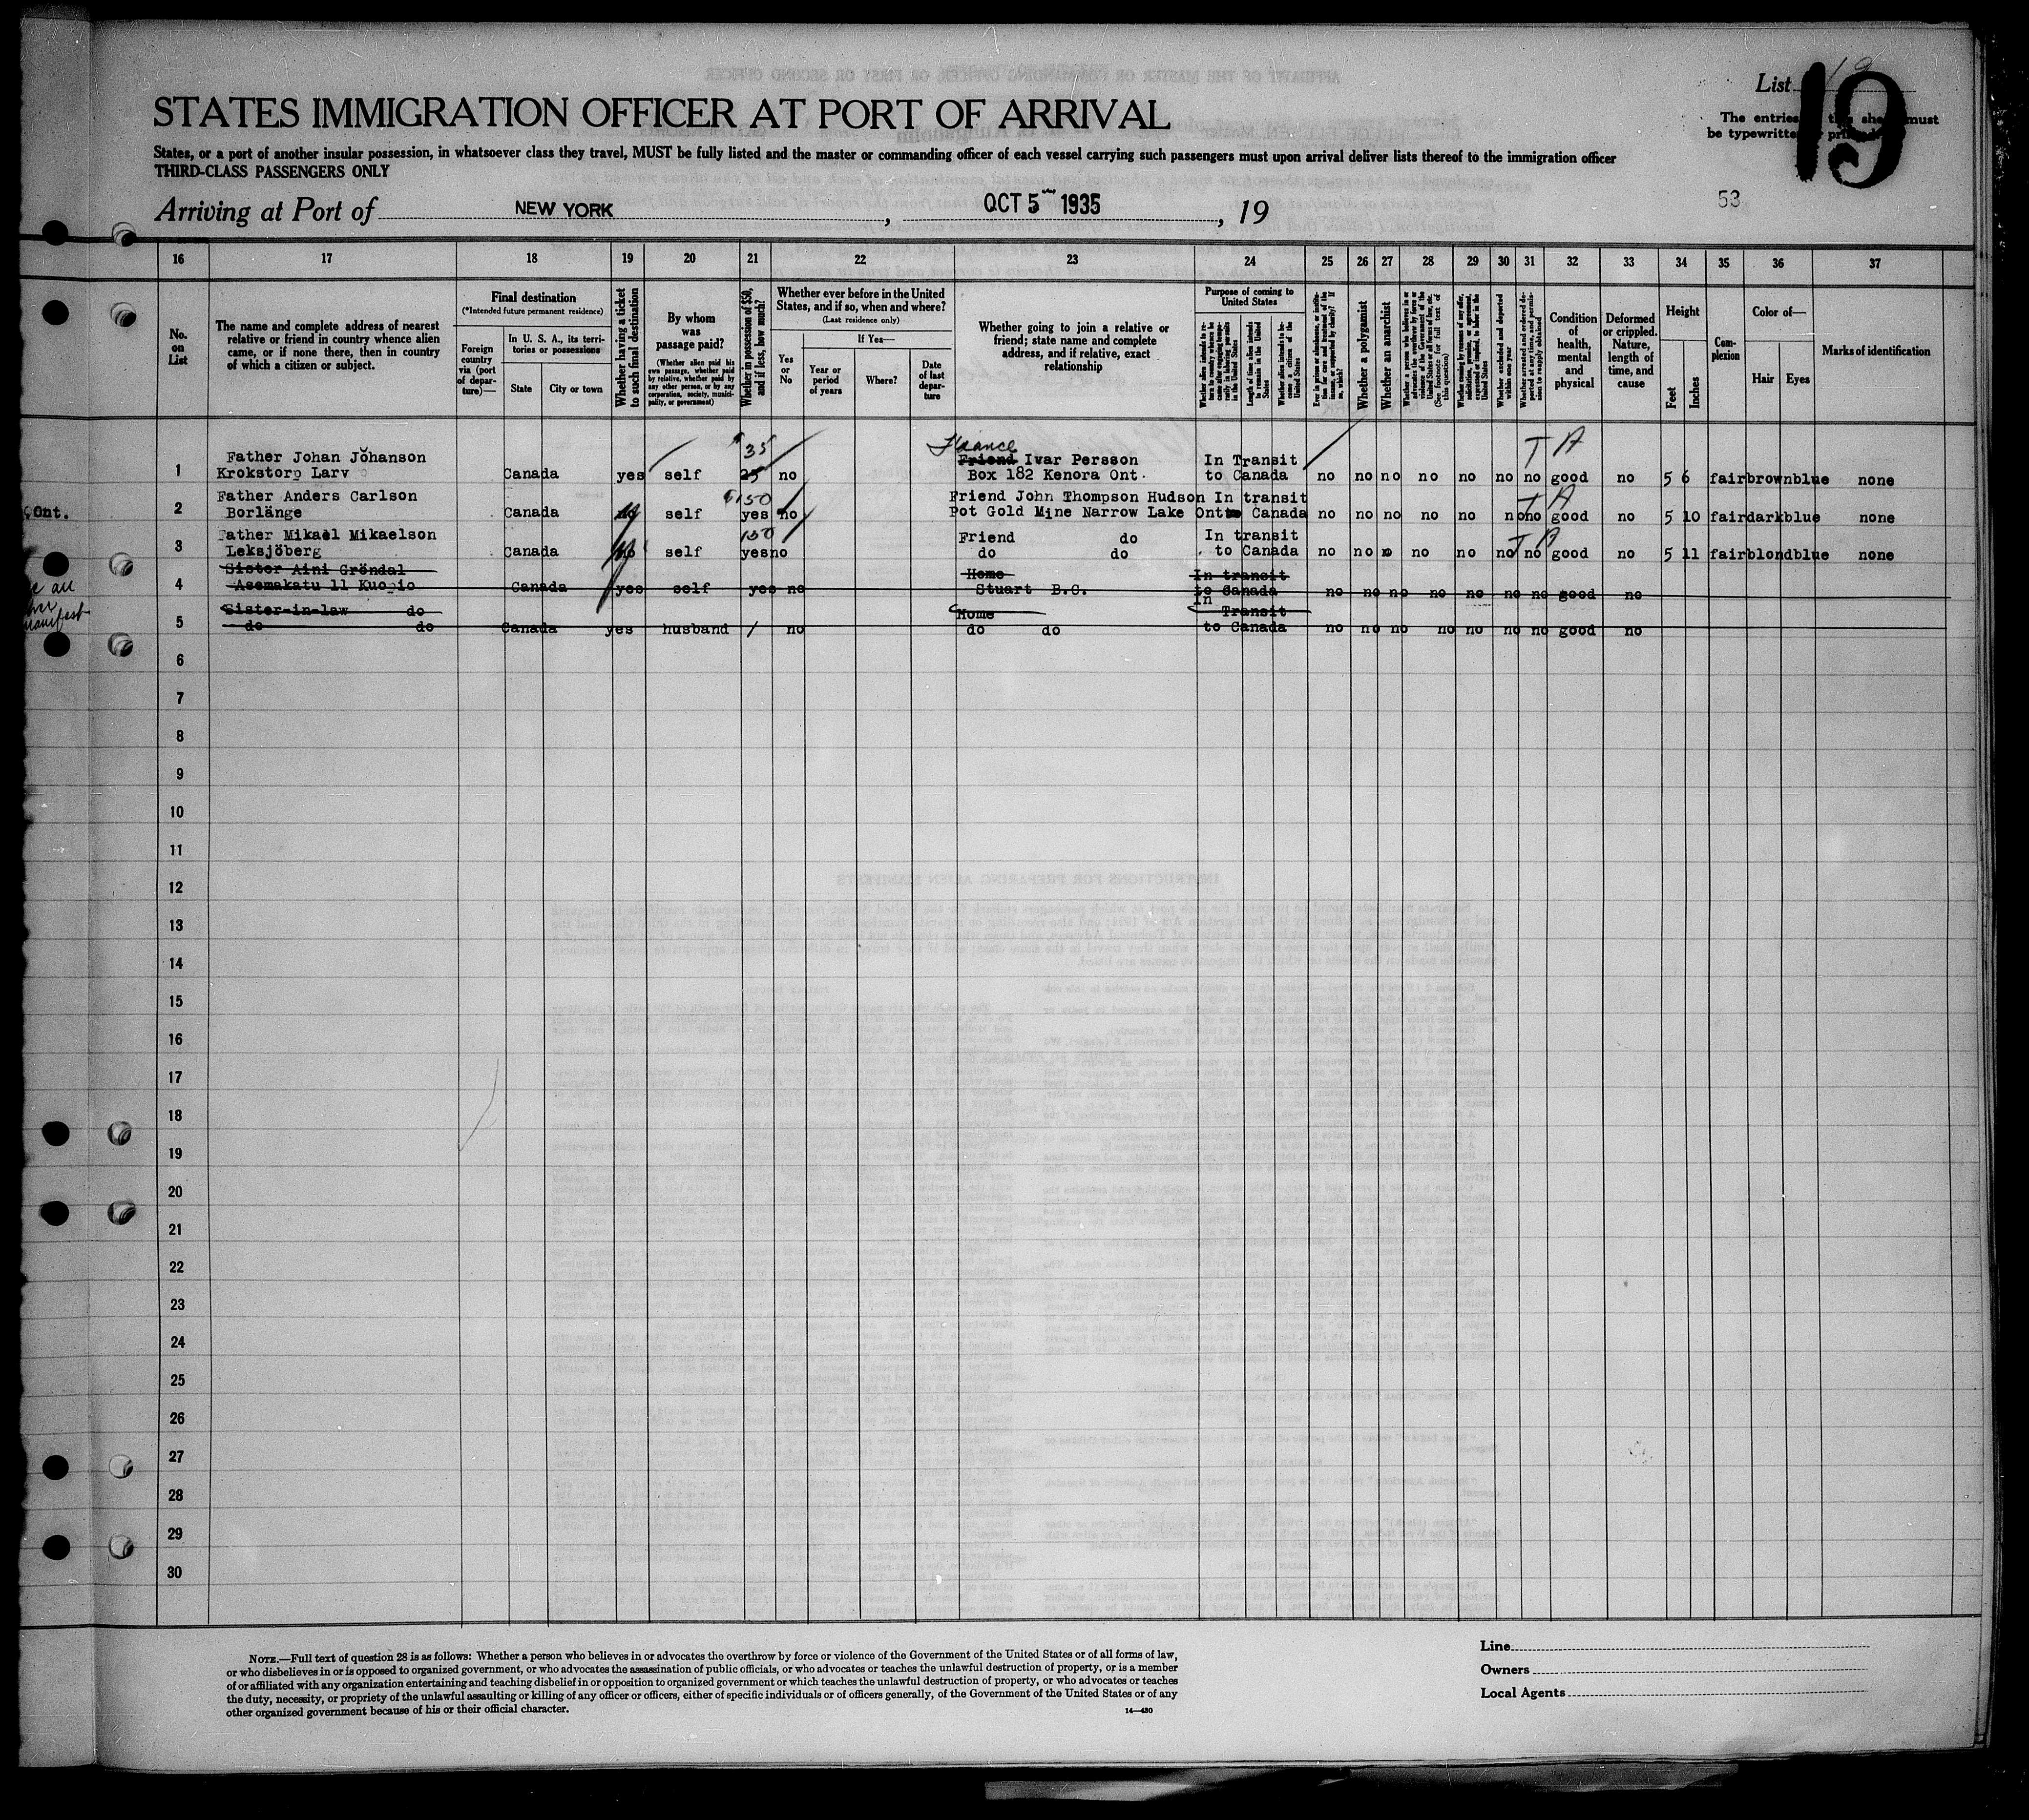 List 19
19
STATES IMMIGRATION OFFICER AT PORT OF ARRIVAL
The entries must
be typewritten
States, or a port of another insular possession, in whatsoever class they travel, MUST be fully listed and the master or commanding officer of each vessel carrying such passengers must upon arrival deliver lists thereof to the immigration officer
THIRD-CLASS PASSENGERS ONLY
53
Arriving at Port of NEW YORK, OCT 5 1935, 19
16 17 18 19 20 21 22 23 24 25 26 27 28 29 30 31 32 33 34 35 36 37
No. on List
The name and complete address of nearest relative or friend in country whence alien came, or if none there, then in country of which a citizen or subject.
Final destination
(*Intended future permanent residence)
Foreign country via (port of departure)—
In U. S. A., its territories or possessions
State
City or town
Whether having a ticket to such final destination
By whom was passage paid?
(Whether alien paid his own passage, whether paid by relative, whether paid by any other person, or by any corporation, society, municipality, or government)
Whether in possession of $50, and if less, how much?
Whether ever before in the United States, and if so, when and where?
(Last residence only)
Yes or No
If Yes—
Year or period of years
Where?
Date of last departure
Whether going to join a relative or friend; state name and complete address, and if relative, exact relationship
Purpose of coming to United States
Whether alien intends to return to country whence he came after engaging temporarily in laboring pursuits in the United States
Length of time alien intends to remain in the United States
Whether alien intends to become a citizen of the United States
Whether a polygamist
Whether an anarchist
(See footnote for full text of this question)
Whether excluded and deported within one year
Condition of health, mental and physical
Deformed or crippled. Nature, length of time, and cause
Height
Feet
Inches
Complexion
Color of—
Hair
Eyes
Marks of identification
Fiance
$35
T A
Father Johan Johanson Friend Ivar Persson In Transit
1 Krokstorp Larv Canada yes self 25 no Box 182 Kenora Ont. to Canada no no no no no no no good no 5 6 fair brown blue none
Father Anders Carlson $150 Friend John Thompson Hudson In transit T A
Ont. 2 Borlänge Canada no self yes no Pot Gold Mine Narrow Lake Ont to Canada no no no no no no no good no 5 10 fair dark blue none
Father Mikael Mikaelson 150 Friend do In transit T A
3 Leksjöberg Canada no self yes no do do to Canada no no no no no no no good no 5 11 fair blond blue none
Sister Aini Gröndal Home In transit
4 Asemakatu 11 Kuopio Canada yes self yes no Stuart B.C. to Canada no no no no no no no good no
Sister-in-law do Home In Transit
manifest 5 do do Canada yes husband / no do do to Canada no no no no no no no good no
6
7
8
9
10
11
12
13
14
15
16
17
18
19
20
21
22
23
24
25
26
27
28
29
30
NOTE.—Full text of question 28 is as follows: Whether a person who believes in or advocates the overthrow by force or violence of the Government of the United States or of all forms of law,
or who disbelieves in or is opposed to organized government, or who advocates the assassination of public officials, or who advocates or teaches the unlawful destruction of property, or is a member
of or affiliated with any organization entertaining and teaching disbelief in or opposition to organized government or which teaches the unlawful destruction of property, or who advocates or teaches
the duty, necessity, or propriety of the unlawful assaulting or killing of any officer or officers, either of specific individuals or of officers generally, of the Government of the United States or of any
other organized government because of his or their official character.
14—430
Line
Owners
Local Agents